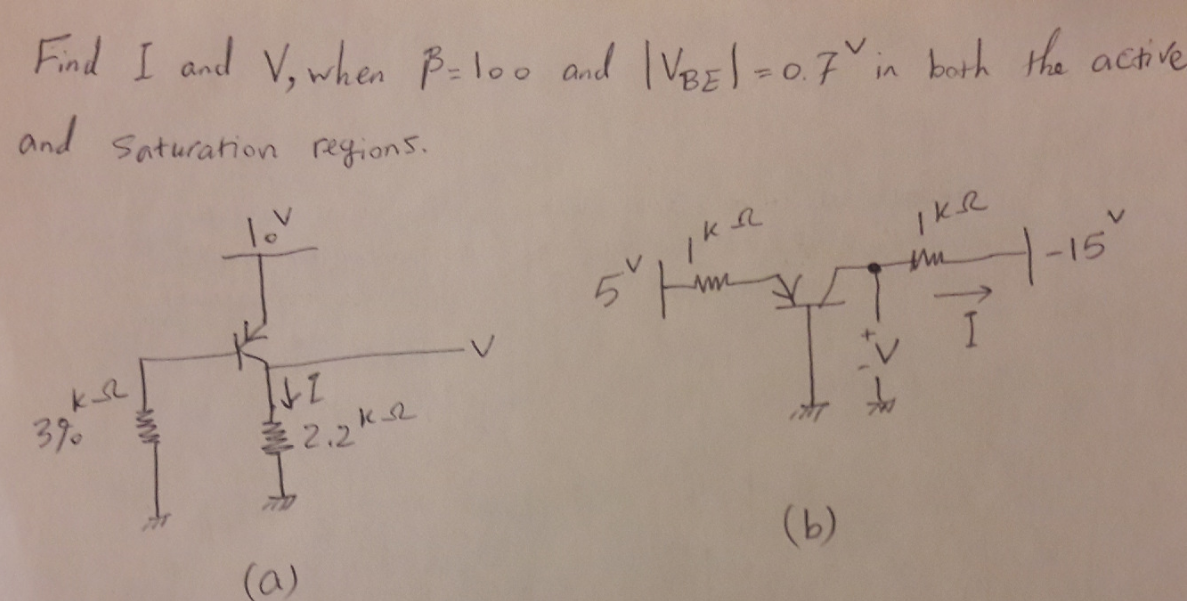 Find I and V, when β=100 and |VBE|=0.7V in both the active
and saturation regions.
10V
V
390kΩ
I
2.2kΩ
(a)
5V
1kΩ
1kΩ
-15V
I
+
V
-
(b)